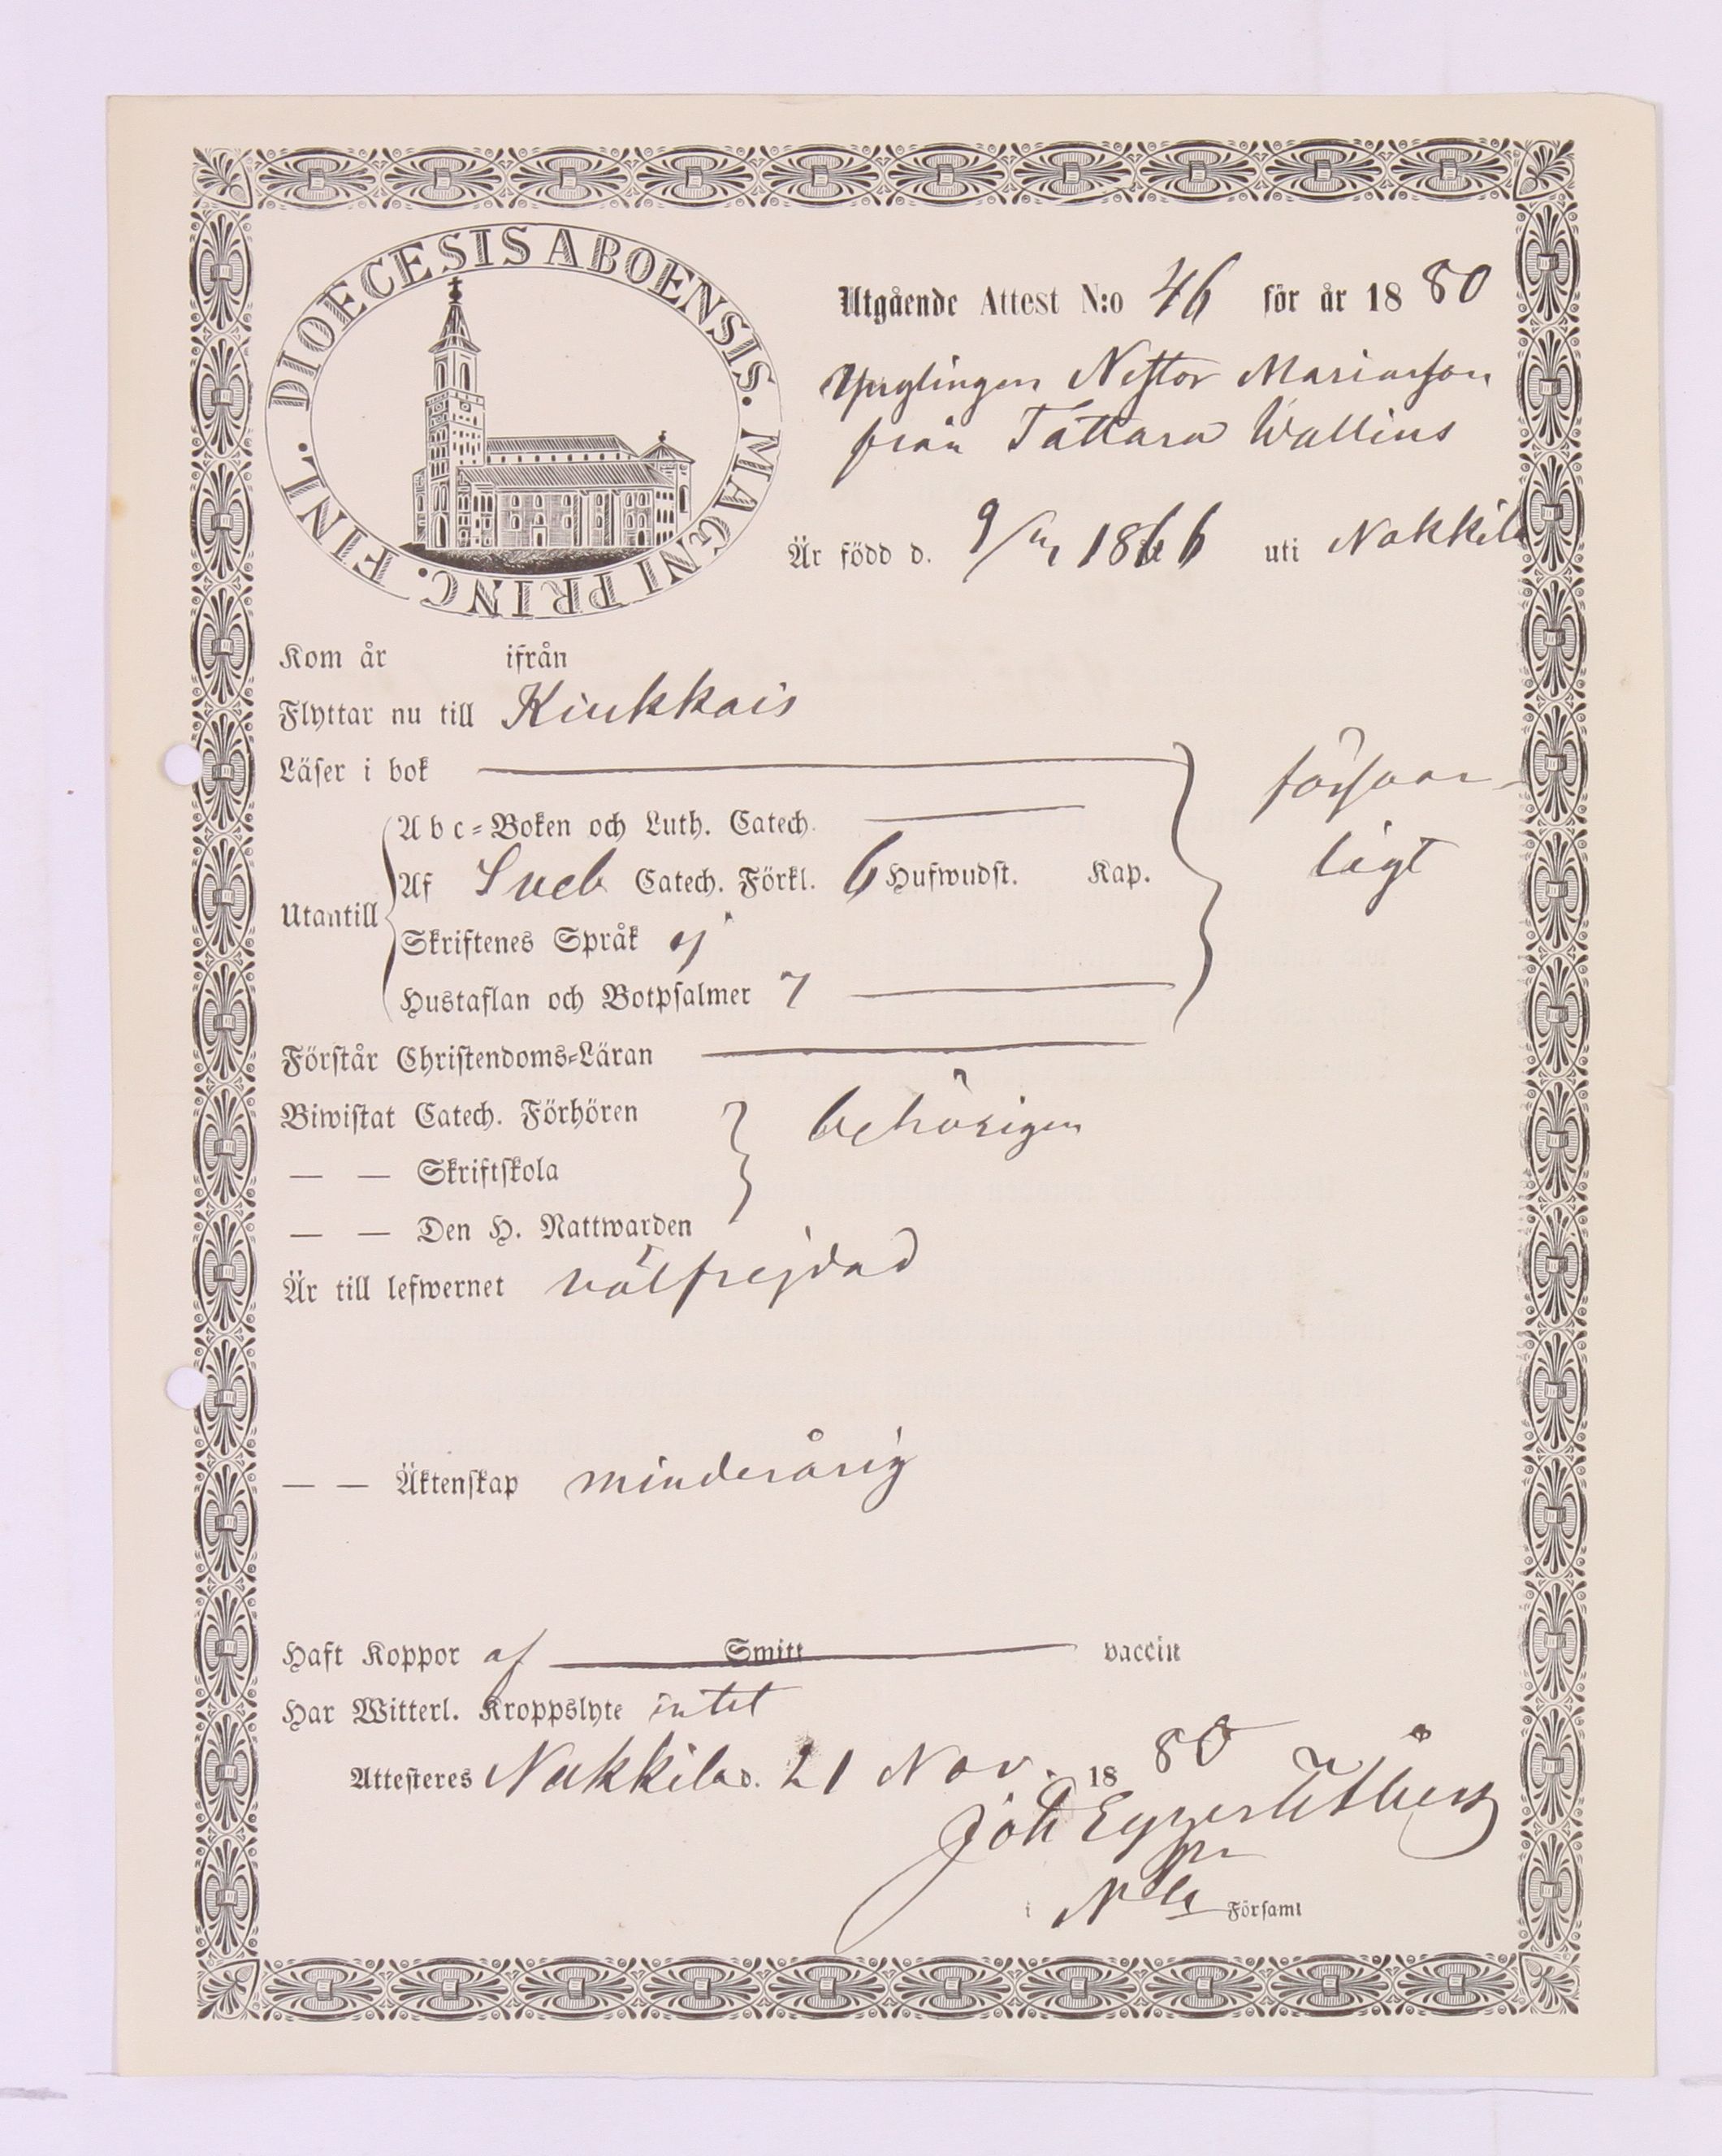 DIOECESIS ABOENSIS. MAGNI PRINC. FINL.
Utgående Attest N:o 46 för år 1880
Ynglingen Nestor Mariasson
från Tattara Wallins
Är född d. 9/ 1866 uti Nakkila
Kom år ifrån
Flyttar nu till Kiukkais
Läser i bok
försvar-
Abc=Boken och Luth. Catech.
ligt
Af Sveb Catech. Förkl. 6 Hufwudst. Kap.
Utantill
Skriftenes Språk ej
Hustaflan och Botpsalmer 7
Förstår Christendoms=Läran
Biwistat Catech. Förhören
behörigen
— — Skriftskola
— — Den H. Nattwarden
Är till lefwernet välfrejdad
— — Äktenskap minderårig
Haft Koppor af Smitt vaccin
Har Witterl. Kroppslyte intet
Attesteres Nakkila d. 21 Nov. 1880
Joh Eggert
i N:la Församl